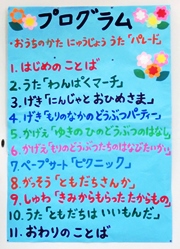 プログラム
・おうちのかた にゅうじょう うた「パレード」
1. はじめの ことば
2. うた「わんぱくマーチ」
3. げき「にんじゃと おひめさま」
4. げき「もりのなかの どうぶつパーティー」
5. かげえ「ゆきの ひの どうぶつの はなし」
6. かげえ「もりの どうぶつたちの はなびたいか
7. ペープサート「ピクニック」
8. がっそう「ともだちさんか」
9. しゅわ「きみからもらった たからもの」
10. うた「ともだちは いいもんだ」
11. おわりの ことば